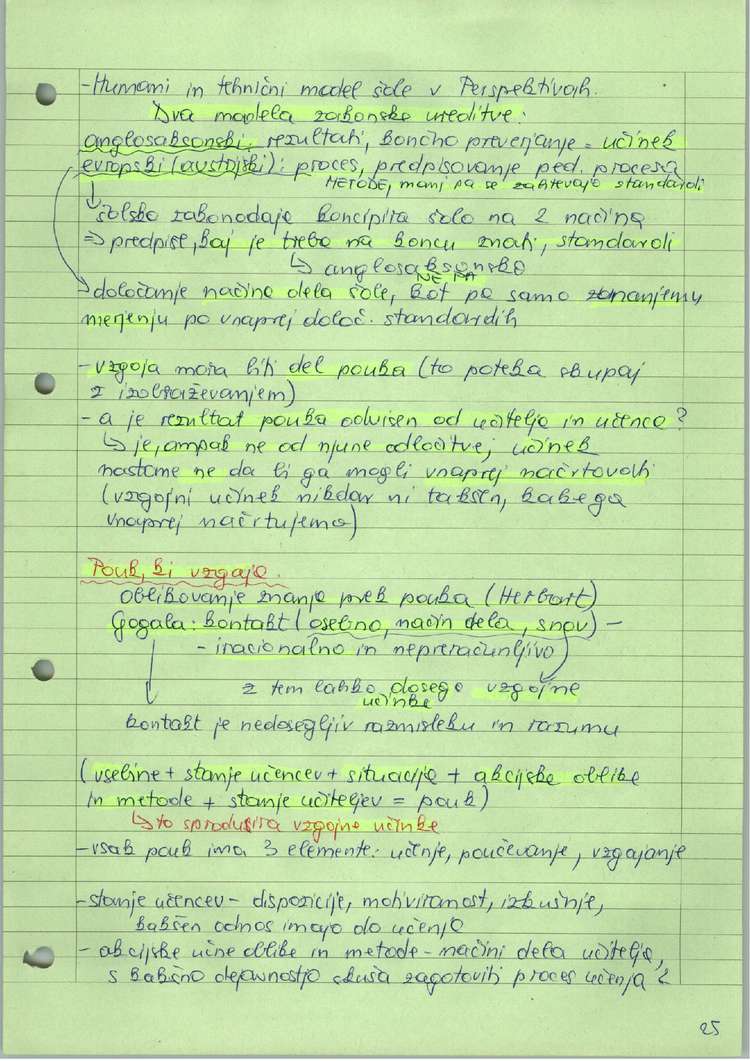 - Humani in tehnični model šole v Perspektivah.
Dva modela zakonske ureditve:
anglosaksonski: rezultati, končno preverjanje = učinek
evropski (avstrijski): proces, predpisovanje ped. procesa
METODE, manj pa se zahtevajo standardi
↳ šolsko zakonodajo koncipira šolo na 2 načina
⇒ predpiše, kaj je treba na koncu znati, standardi
↳ anglosaksonsko
NE PA
→ določanje načina dela šole, kot pa samo zunanjemu
merjenju po vnaprej določ. standardih
- vzgoja mora biti del pouka (to poteka skupaj
z izobraževanjem)
- a je rezultat pouka odvisen od učitelja in učenca?
↳ je, ampak ne od njune odločitve, učinek
nastane ne da bi ga mogli vnaprej načrtovati
(vzgojni učinek nikdar ni takšen, kakega
vnaprej načrtujemo)
Pouk, ki vzgaja.
oblikovanje znanja prek pouka (Herbart)
Gogala: kontakt (osebno, način dela, snov) -
- iracionalno in nepreračunljivo
z tem lahko dosega vzgojne
učinke
kontakt je nedosegljiv razmisleku in razumu
(vsebine + stanje učencev + situacija + akcijske oblike
in metode + stanje učiteljev = pouk)
↳ to sproducira vzgojne učinke
- vsak pouk ima 3 elemente: učenje, poučevanje, vzgajanje
- stanje učencev - dispozicije, motiviranost, izkušnje,
kakšen odnos imajo do učenja
- akcijske učne oblike in metode - načini dela učitelja,
s kakšno dejavnostjo skuša zagotoviti proces učenja?
25